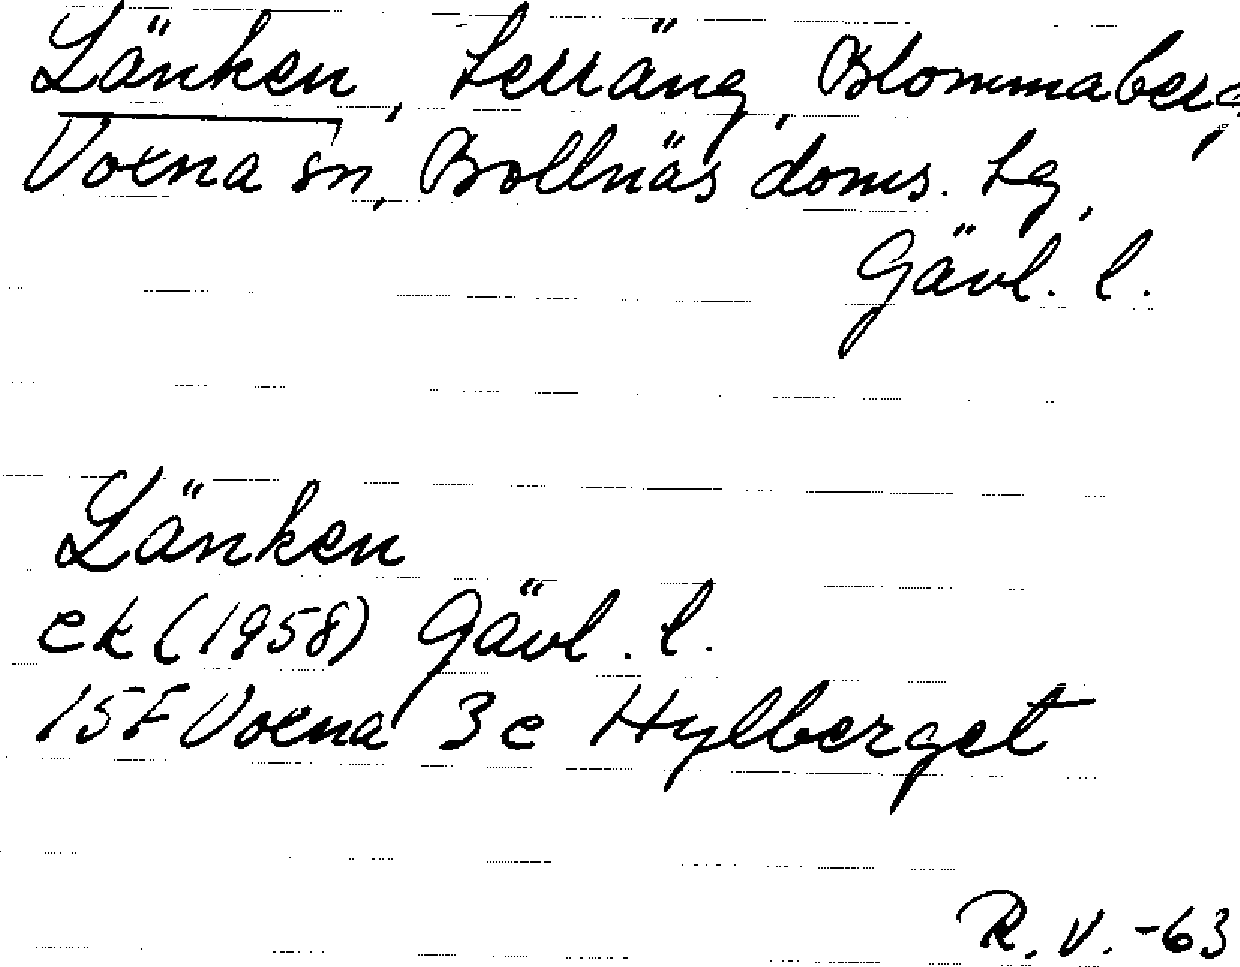 Länken, terräng, Blommaberg,
Voxna sn, Bollnäs doms. tg,
Gävl. l.
Länken
ek (1958) Gävl. l.
15F Voxna 3e Hylberget
R. V. -63